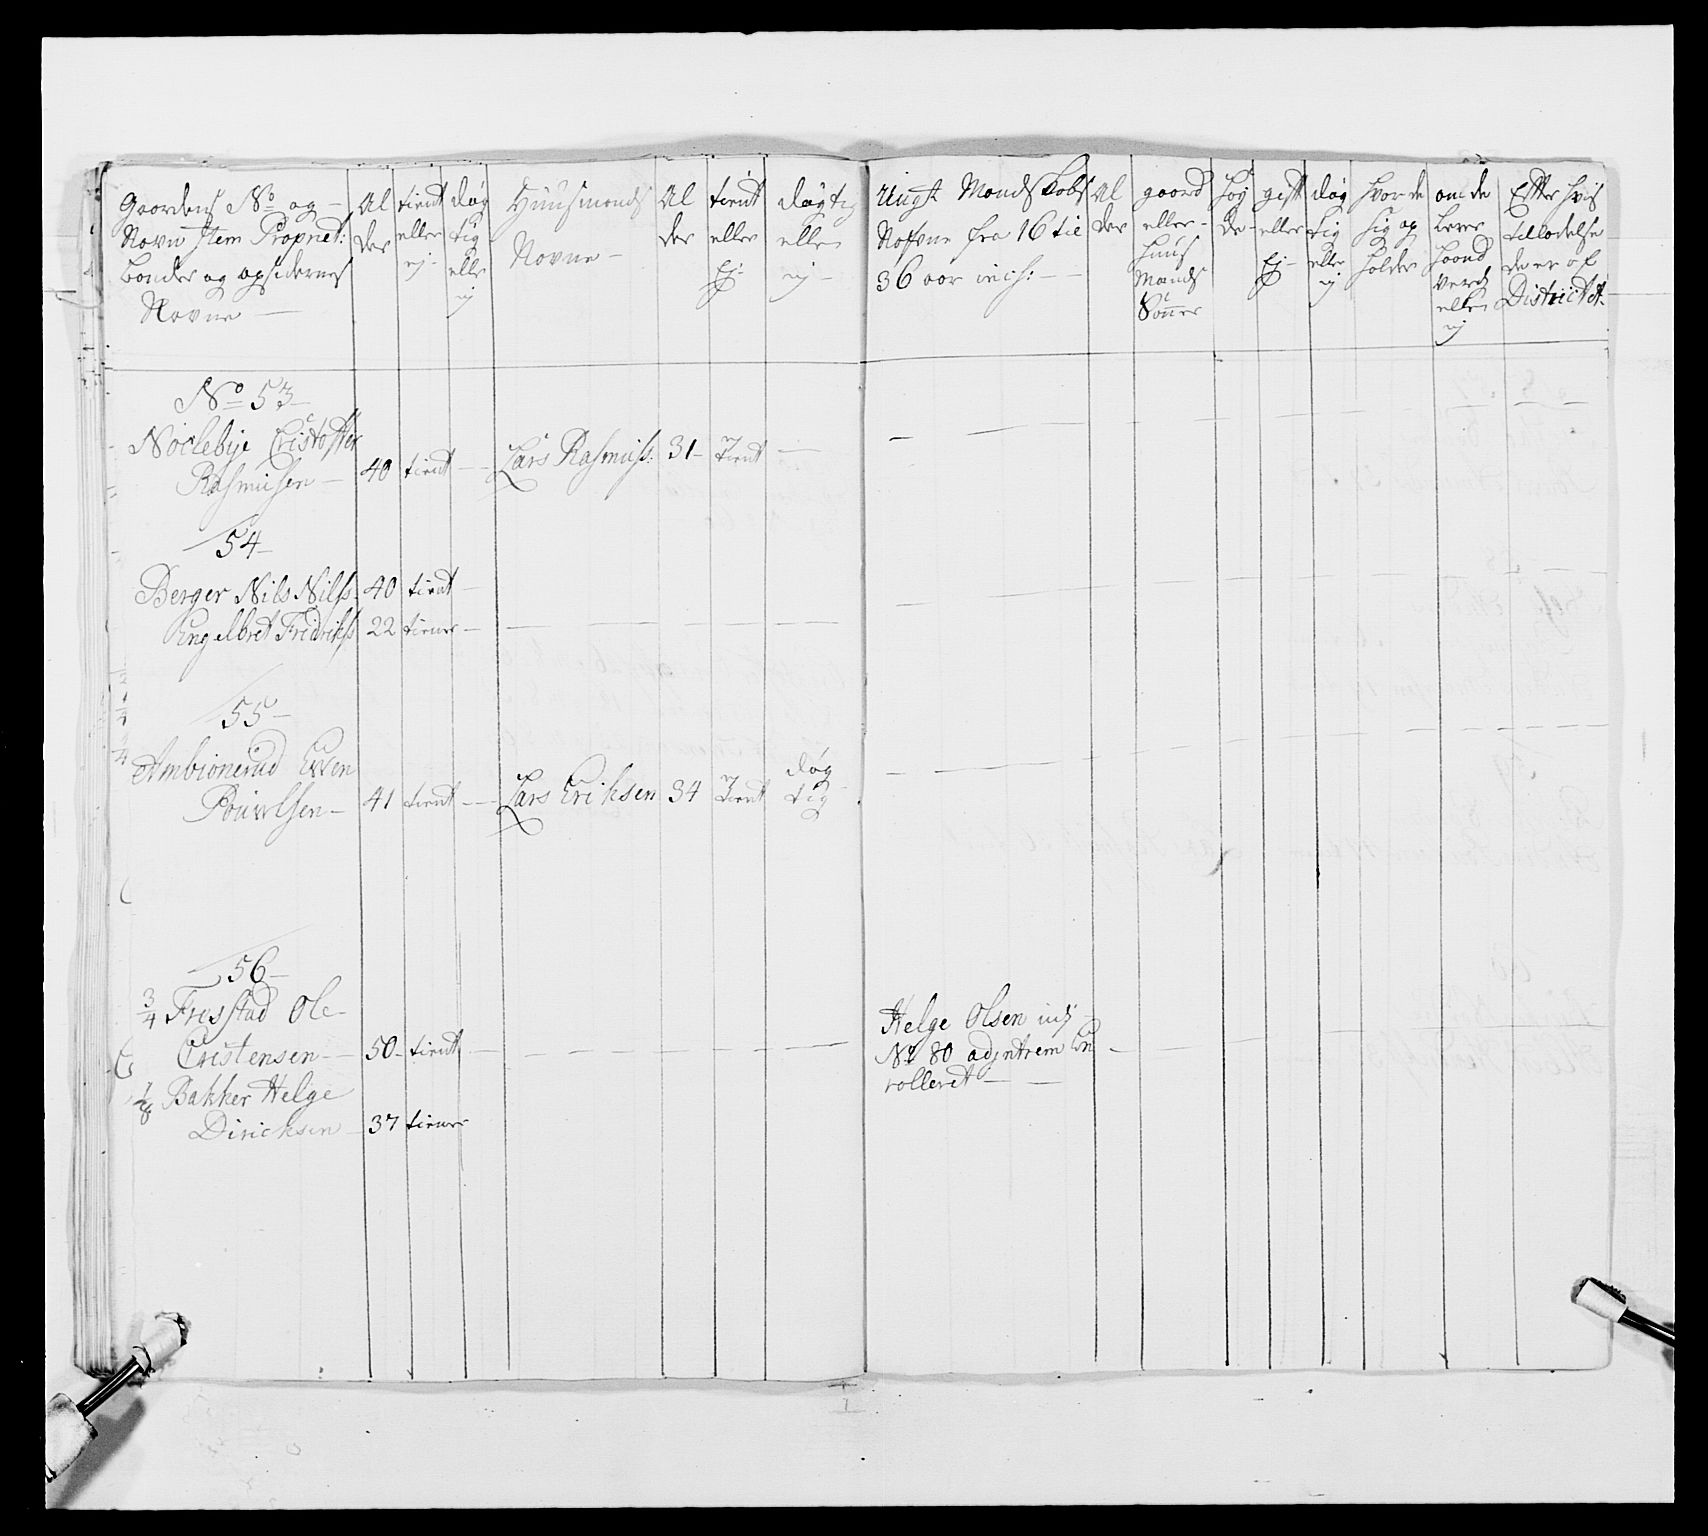 Gaardens No og
Navn Item Propriet:
bonder og opsidernes
Navne
Al
der
tient
eller
ej
døg
tig
eller
ej
Huusmænds
Navne
Al
der
tient
eller
Ej
døgtig
eller
ej
Ungt Mandskabs
Nafvne fra 16 til
36 aar incl:
Al
der
gaard
eller
Huus
Mands
Sønner
høy
de
gift
eller
Ej
døg
tig
eller
ej
hvor de
sig op
holder
om de
lærer
haand
verch
eller
ej
Efter hvis
tilladelse
de er af
Districtet
No 53
Noclebye Cristoffer
Rasmusen 40 tient Lars Rasmuss: 31 Tient
54
Berger Nils Nilss 40 tient
Engelbret Fridrikss 22 tiener
55
døg
Ambionerud Even
Pouwlsen 41 tient Lars Eriksen 34 Tient tig
56
3/4 Frosstad Ole
Cristensen 50 tient
1/8 Bakker Helge
Diricksen 37 tiener
Helge Olsen
No 80
rolleret